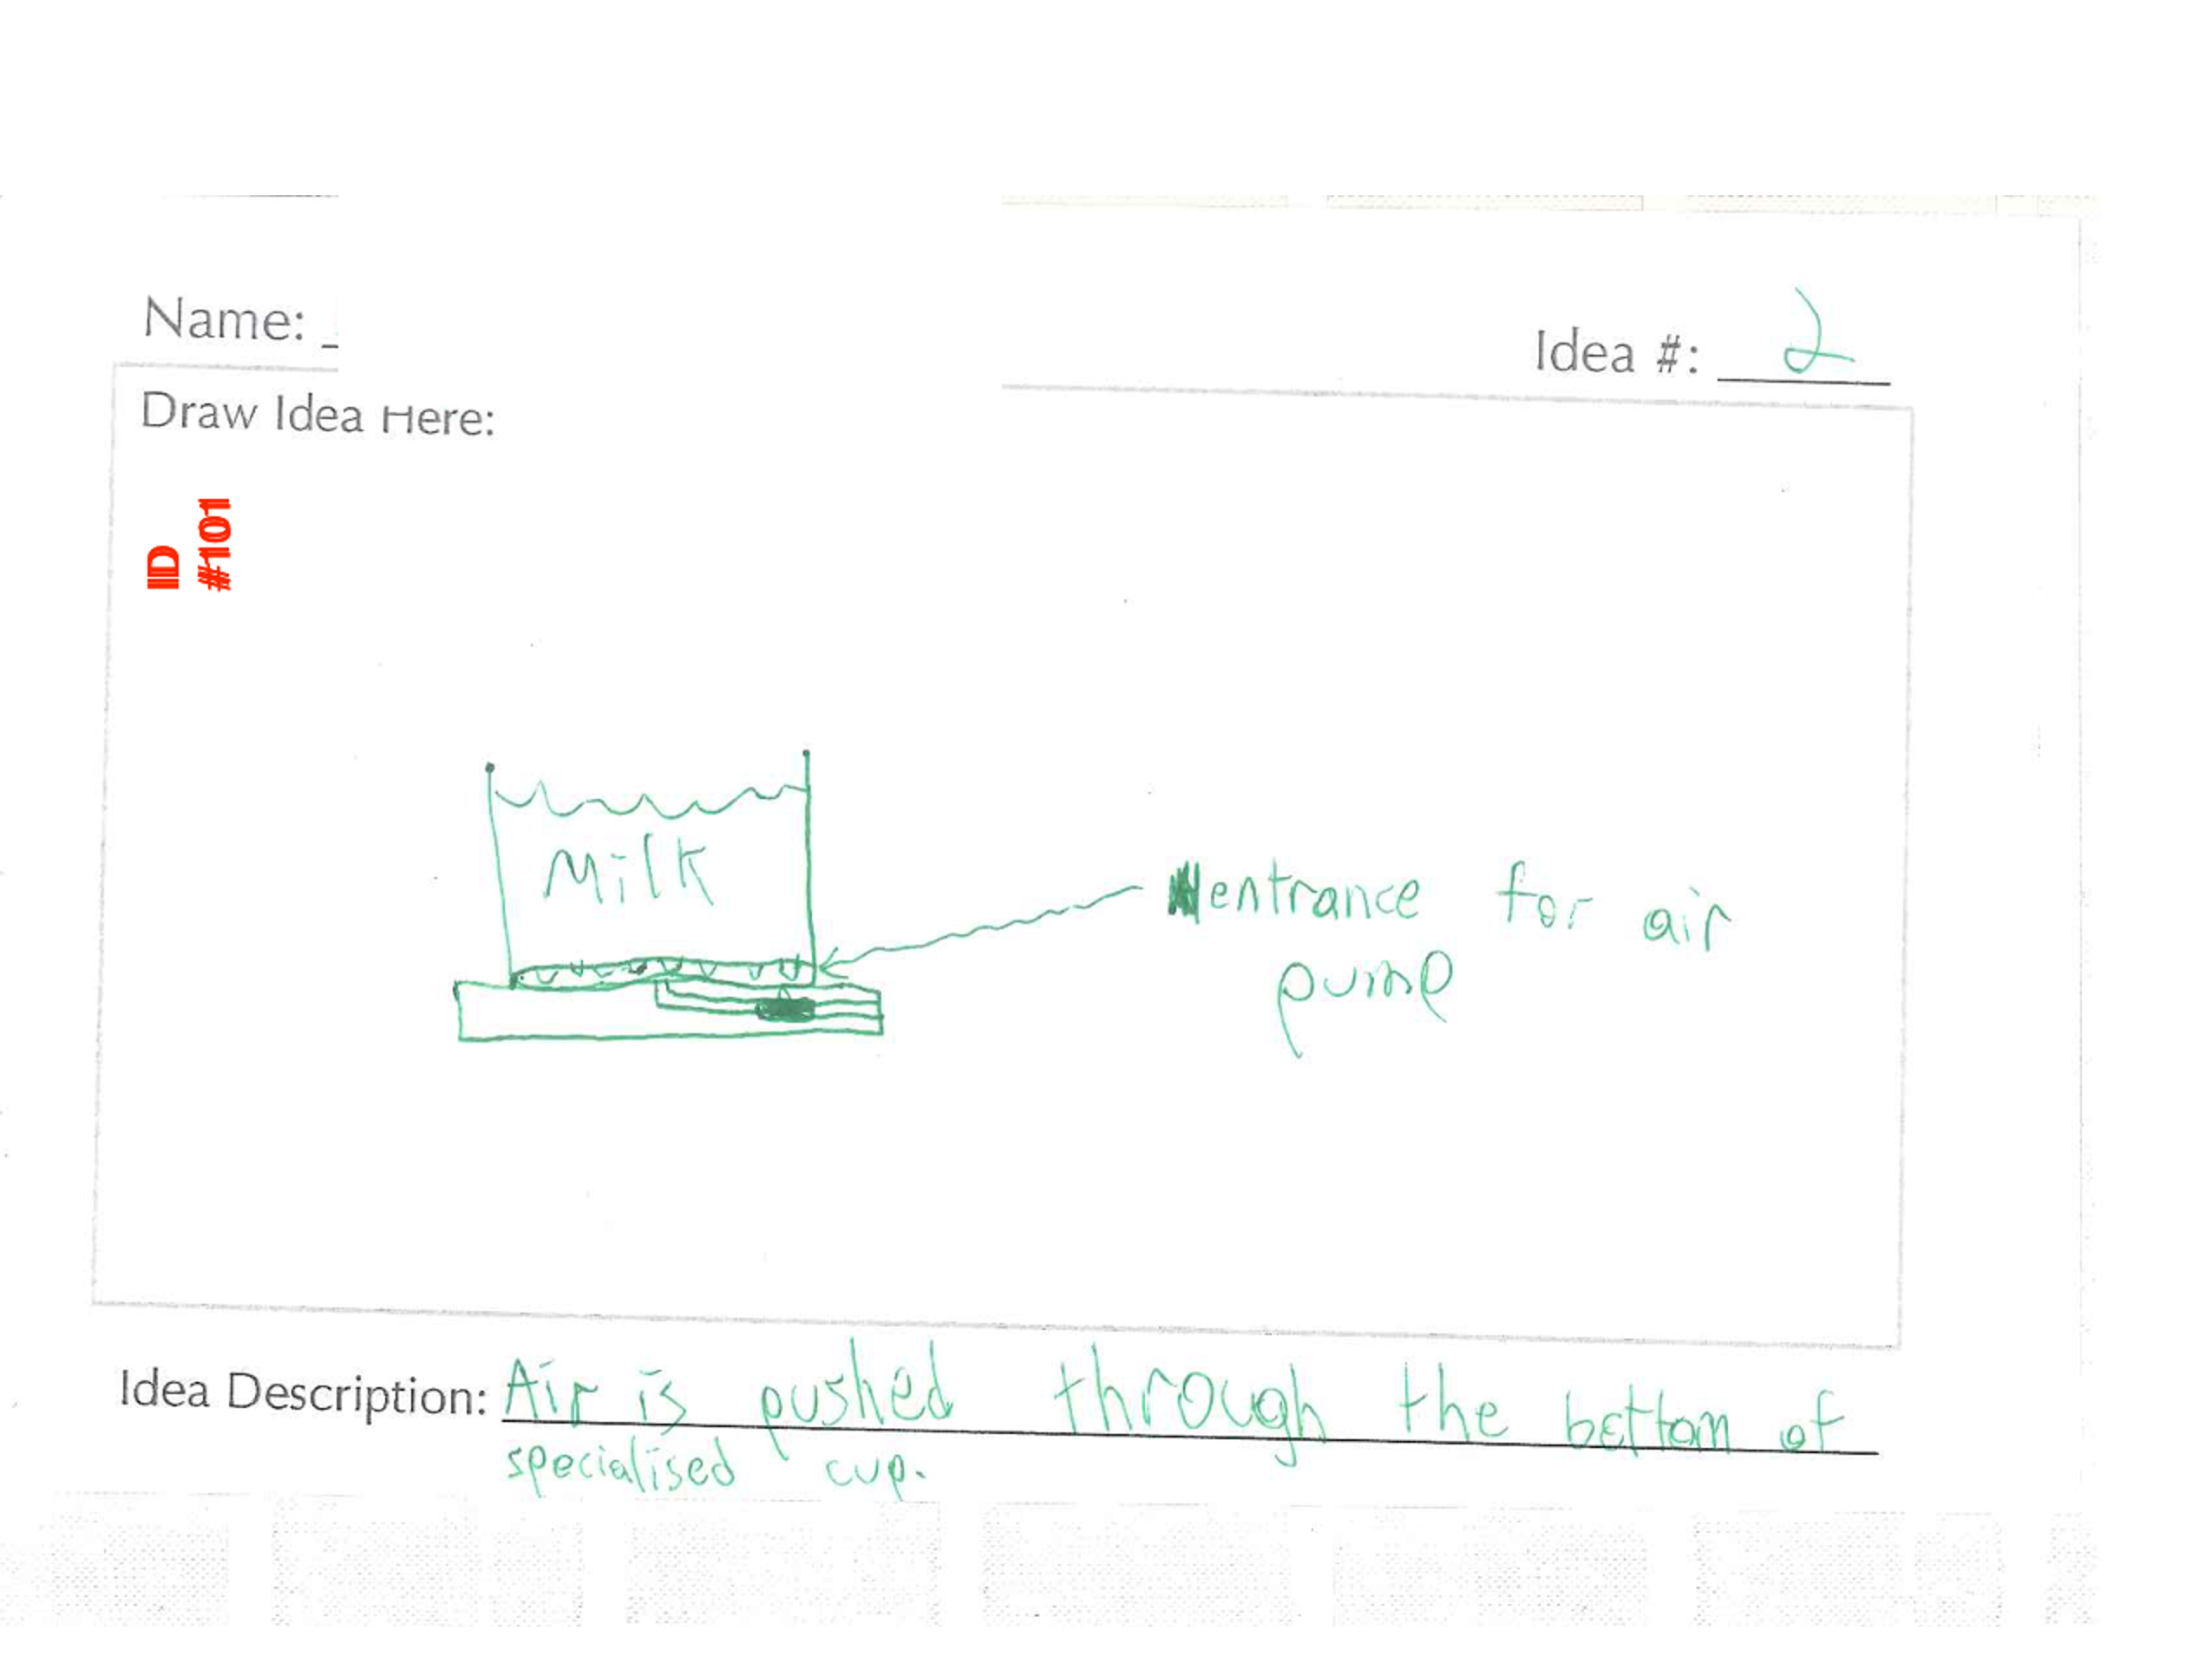 Name:
Idea #: 2
Draw Idea Here:
ID
#101
Milk
entrance for air
pump
Idea Description: Air is pushed through the bottom of
specialised cup.